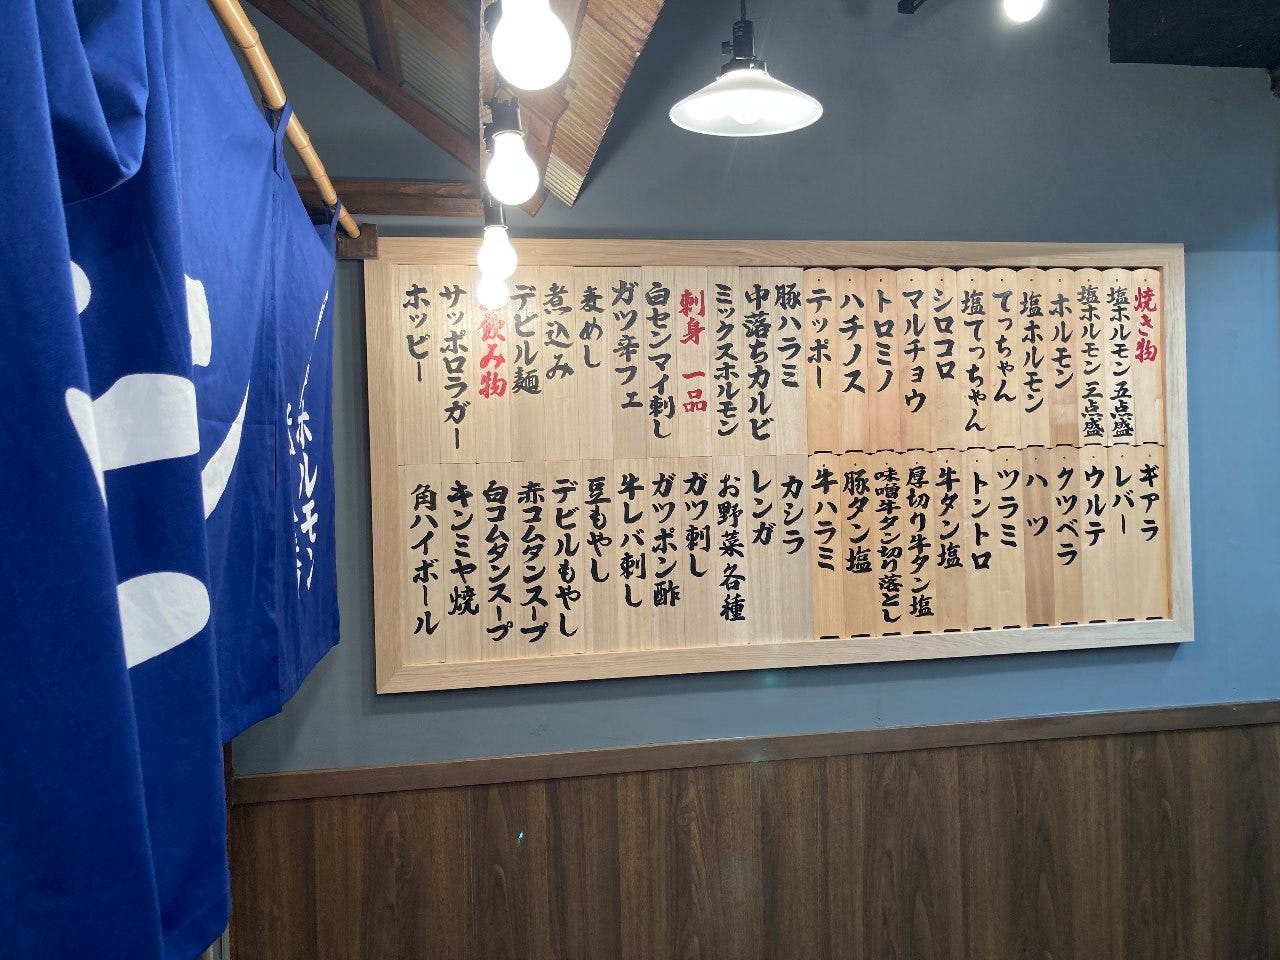 焼き物
塩ホルモン五点盛
塩ホルモン三点盛
ホルモン
塩ホルモン
てっちゃん
塩てっちゃん
シロコロ
マルチョウ
トロミノ
ハチノス
テッポー
豚ハラミ
中落ちカルビ
ミックスホルモン
刺身 一品
白センマイ刺し
ガツ辛フェ
麦めし
煮込み
デビル麺
飲み物
サッポロラガー
ホッピー
ギアラ
レバー
ウルテ
クツベラ
ハツ
ツラミ
トントロ
牛タン塩
厚切り牛タン塩
味噌牛タン切り落とし
豚タン塩
牛ハラミ
カシラ
レンガ
お野菜各種
ガツ刺し
ガツポン酢
牛レバ刺し
豆もやし
デビルもやし
赤コムタンスープ
白コムタンスープ
キンミヤ焼
角ハイボール
ホルモン